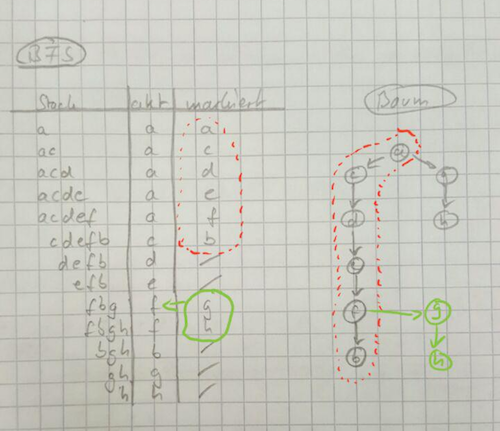 BFS
Stack akt markiert
a a a
ac a c
acd a d
acde a e
acdef a f
cdefb c b
defb d /
efb e /
fbg f g
fbgh f h
bgh b /
gh g /
h h /
Baum
a
c
d
f g
b h